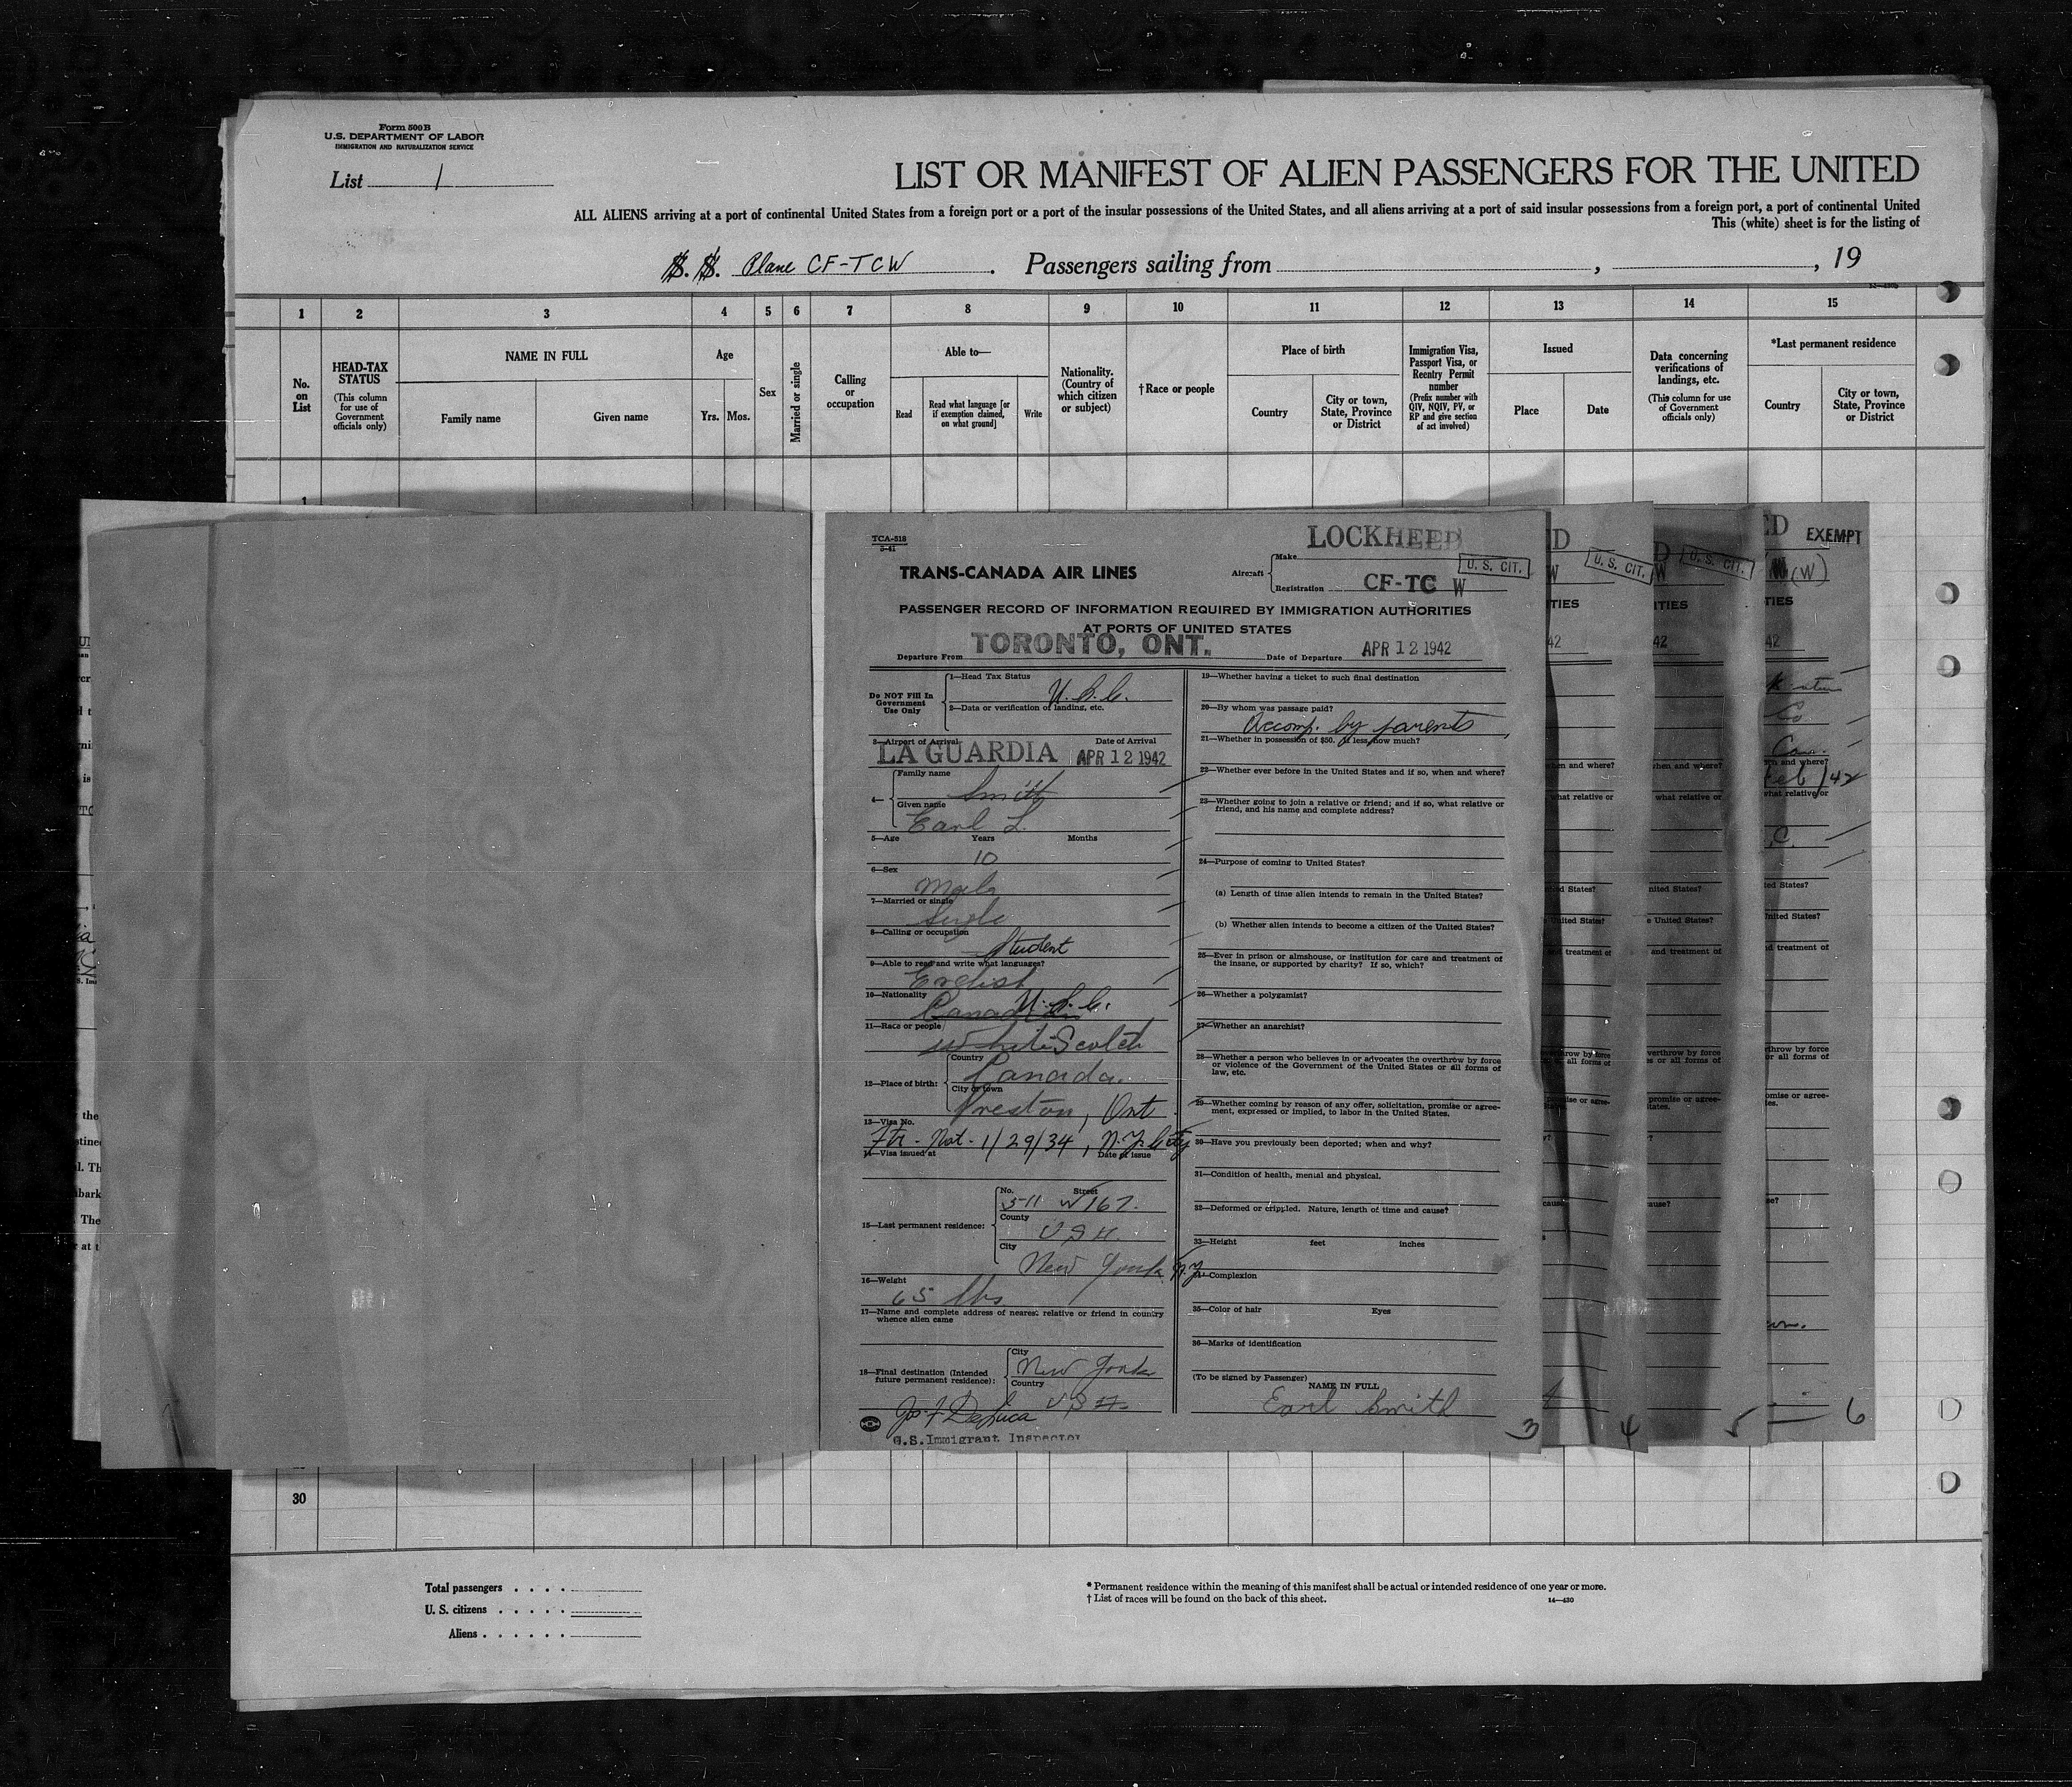 Form 500 B
U.S. DEPARTMENT OF LABOR
IMMIGRATION AND NATURALIZATION SERVICE
List 1
LIST OR MANIFEST OF ALIEN PASSENGERS FOR THE UNITED
ALL ALIENS arriving at a port of continental United States from a foreign port or a port of the insular possessions of the United States, and all aliens arriving at a port of said insular possessions from a foreign port, a port of continental United
This (white) sheet is for the listing of
S. S. Plane CF-TCW . Passengers sailing from , , 19
1 2 3 4 5 6 7 8 9 10 11 12 13 14 15
No. on List
HEAD-TAX STATUS
(This column for use of Government officials only)
NAME IN FULL
Family name
Given name
Age
Yrs. Mos.
Sex
Married or single
Calling or occupation
Able to—
Read
Read what language [or if exemption claimed, on what ground]
Write
Nationality. (Country of which citizen or subject)
† Race or people
Place of birth
Country
City or town, State, Province or District
Immigration Visa, Passport Visa, or Reentry Permit number
(Prefix number with QIV, NQIV, PV, or RP and give section of act involved)
Issued
Place
Date
Data concerning verifications of landings, etc.
(This column for use of Government officials only)
*Last permanent residence
Country
City or town, State, Province or District
1
TCA-518
5-41
TRANS-CANADA AIR LINES
Aircraft
Make LOCKHEED
Registration CF-TC W
U. S. CIT.
PASSENGER RECORD OF INFORMATION REQUIRED BY IMMIGRATION AUTHORITIES
AT PORTS OF UNITED STATES
Departure From TORONTO, ONT.
Date of Departure APR 12 1942
Do NOT Fill In Government Use Only
1—Head Tax Status
U.S.C.
2—Data or verification of landing, etc.
3—Airport of Arrival Date of Arrival
LA GUARDIA APR 12 1942
4— Family name
Smith
Given name
Earl L.
5—Age Years Months
10
6—Sex
Male
7—Married or single
Single
8—Calling or occupation
Student
9—Able to read and write what languages?
English
10—Nationality
Canadian U.S.C.
11—Race or people
White Scotch
12—Place of birth: Country
Canada
City or town
Preston, Ont
13—Visa No.
Ftr - Nat - 1/29/34, N.Y. City
14—Visa issued at Date of issue
15—Last permanent residence:
No. Street
511 W 167.
County
USA.
City
New York N.Y.
16—Weight
65 lbs
17—Name and complete address of nearest relative or friend in country whence alien came
18—Final destination (Intended future permanent residence):
City
New York
Country
USA
Jos F DeLuca
U.S. Immigrant Inspector
19—Whether having a ticket to such final destination
20—By whom was passage paid?
Accomp. by parents
21—Whether in possession of $50. If less, how much?
22—Whether ever before in the United States and if so, when and where?
23—Whether going to join a relative or friend; and if so, what relative or friend, and his name and complete address?
24—Purpose of coming to United States?
(a) Length of time alien intends to remain in the United States?
(b) Whether alien intends to become a citizen of the United States?
25—Ever in prison or almshouse, or institution for care and treatment of the insane, or supported by charity? If so, which?
26—Whether a polygamist?
27—Whether an anarchist?
28—Whether a person who believes in or advocates the overthrow by force or violence of the Government of the United States or all forms of law, etc.
29—Whether coming by reason of any offer, solicitation, promise or agreement, expressed or implied, to labor in the United States.
30—Have you previously been deported; when and why?
31—Condition of health, mental and physical.
32—Deformed or crippled. Nature, length of time and cause?
33—Height feet inches
34—Complexion
35—Color of hair Eyes
36—Marks of identification
(To be signed by Passenger)
NAME IN FULL
Earl Smith
3
U. S. CIT.
4
U. S. CIT.
5
EXEMPT
(W)
6
30
Total passengers
U. S. citizens
Aliens
* Permanent residence within the meaning of this manifest shall be actual or intended residence of one year or more.
† List of races will be found on the back of this sheet.
14—430